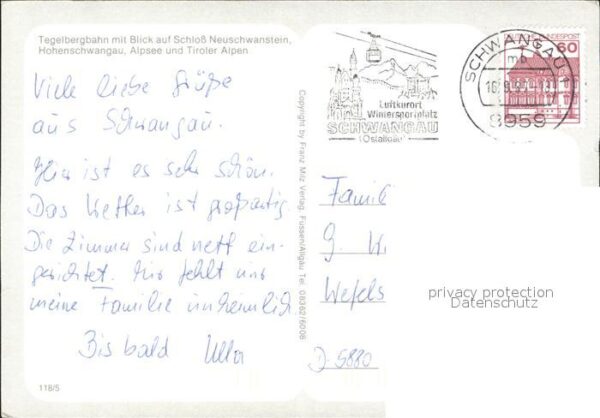 Tegelbergbahn mit Blick auf Schloß Neuschwanstein,
Hohenschwangau, Alpsee und Tiroler Alpen
Viele liebe Grüße
aus Schwangau.
Hier ist es sehr schön.
Das Wetter ist großartig.
Die Zimmer sind nett ein-
gerichtet. Mir fehlt nur
meine Familie unheimlich.
Bis bald Ulla
118/5
Copyright by Franz Milz Verlag, Füssen/Allgäu Tel. 08362/6006
Luftkurort
Wintersportplatz
SCHWANGAU
(Ostallgäu)
SCHWANGAU
mb
8959
BUNDESPOST
60
Famili
G. W
Wefels
D-5880
privacy protection
Datenschutz